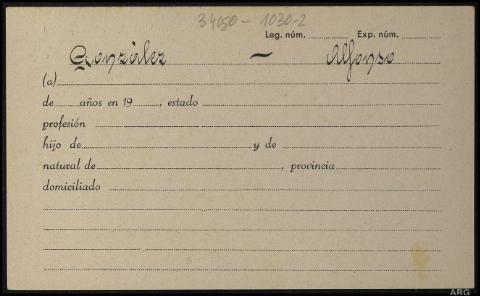 34050 - 1030-2
Leg. núm. Exp. núm.
González — Alfonso
(a)
de años en 19 , estado
profesión
hijo de y de
natural de , provincia
domiciliado
ARG